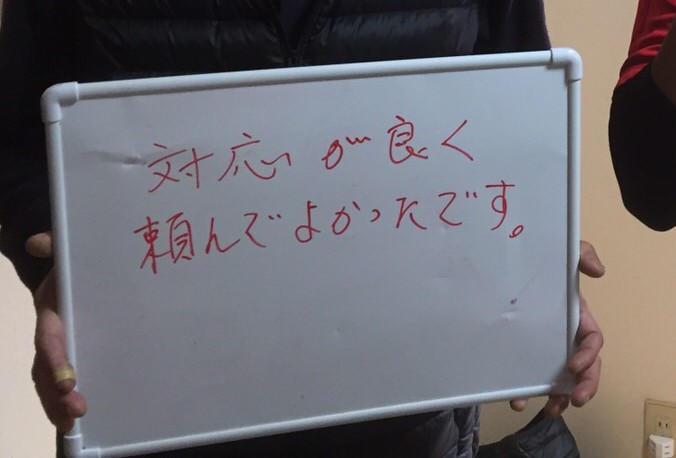 対応が良く
頼んでよかったです。